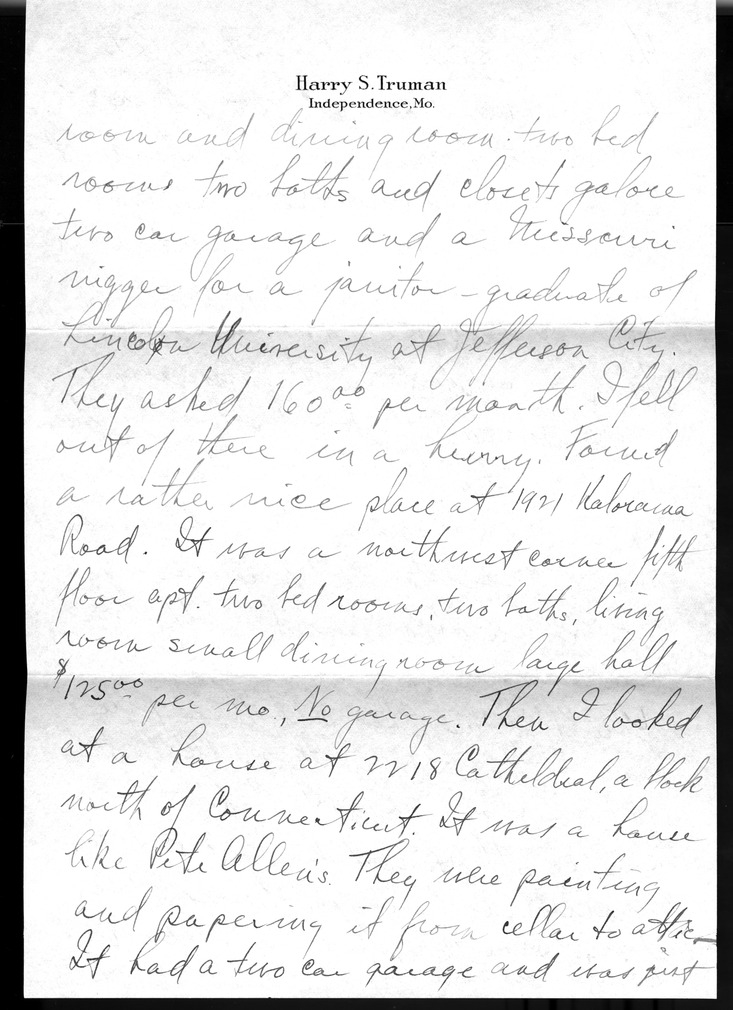 Harry S. Truman
Independence, Mo.
room and dining room. two bed
rooms two baths and closets galore
two car garage and a Missouri
nigger for a janitor - graduate of
Lincoln University at Jefferson City.
They asked 160⁰⁰ per month. I fell
out of there in a hurry. Found
a rather nice place at 1921 Kalorama
Road. It was a northwest corner fifth
floor apt. two bed rooms, two baths, living
room small dining room large hall
$125⁰⁰ per mo., No garage. Then I looked
at a house at 2218 Catheldral, a block
north of Connecticut. It was a house
like Pete Allen's. They were painting
and papering it from cellar to attic—
It had a two car garage and was just